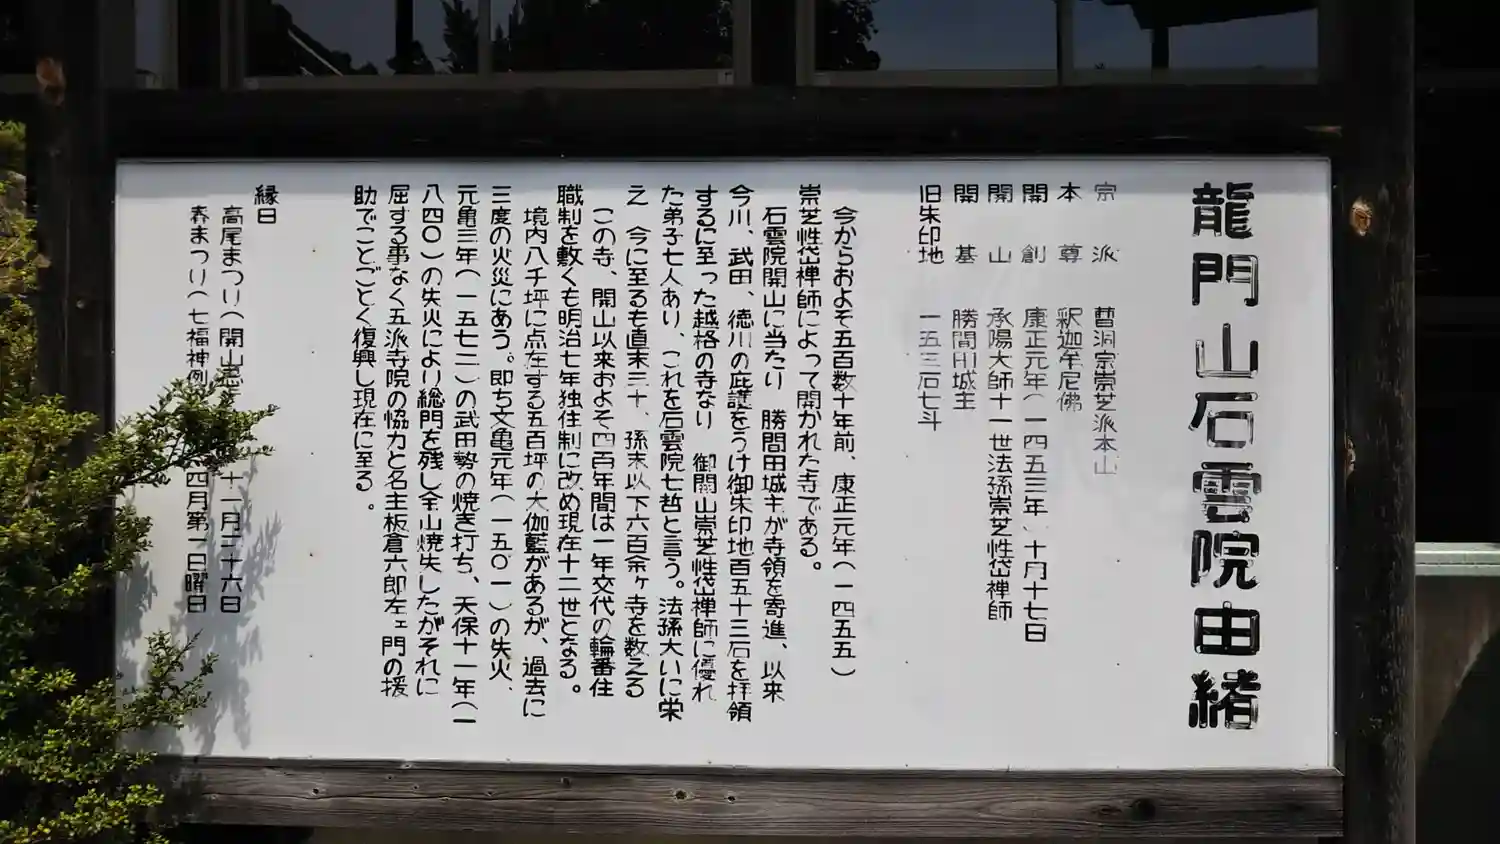 龍門山石雲院由緒
宗派 曹洞宗崇芝派本山
本尊 釈迦牟尼佛
開創 康正元年(一四五三年)十月十七日
開山 承陽大師十一世法孫崇芝性岱禅師
開基 勝間田城主
旧朱印地 一五三石七斗
今からおよそ五百数十年前、康正元年(一四五五)
崇芝性岱禅師によって開かれた寺である。
石雲院開山に当たり 勝間田城主が寺領を寄進、以来
今川、武田、徳川の庇護をうけ御朱印地百五十三石を拝領
するに至った越格の寺なり 御開山崇芝性岱禅師に優れ
た弟子七人あり、これを石雲院七哲と言う。法孫大いに栄
之 今に至るも直末三十、孫末以下六百余ヶ寺を数える
この寺、開山以来およそ四百年間は一年交代の輪番住
職制を敷くも明治七年独住制に改め現在十二世となる。
境内八千坪に点在する五百坪の大伽藍があるが、過去に
三度の火災にあう。即ち文亀元年(一五〇一)の失火、
元亀三年(一五七二)の武田勢の焼き打ち、天保十一年(一
八四〇)の失火により総門を残し全山焼失したがそれに
屈する事なく五派寺院の協力と名主板倉六郎左ェ門の援
助でことごとく復興し現在に至る。
縁日
高尾まつり(開山忌 十一月二十六日
春まつり(七福神例 四月第一日曜日